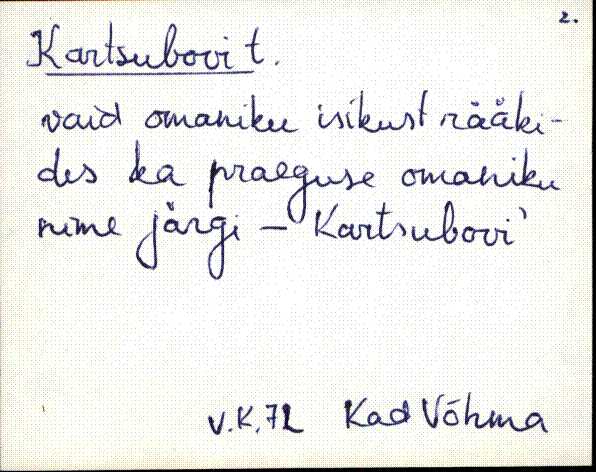 2.
Kartsubovi t.
vaid omaniku isikust rääki-
des ka praeguse omaniku
nime järgi – Kartsubovi'
V.K. 72 Kad Võhma